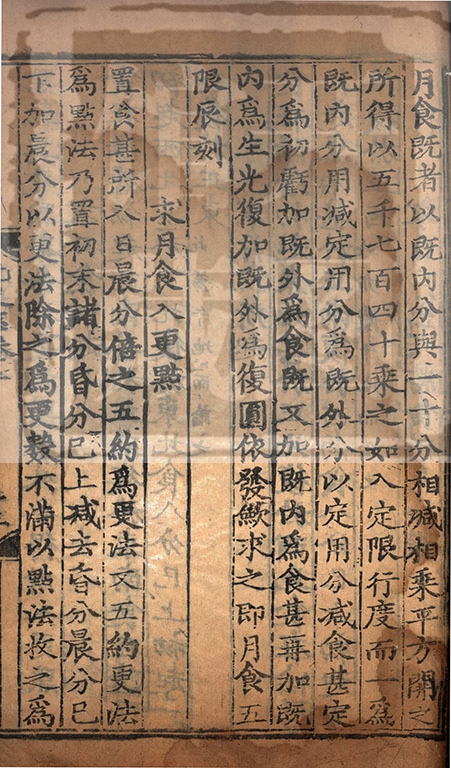 月食既者以既內分與一十分相減相乘平方開之
所得以五千七百四十乘之如入定限行度而一爲
既內分用減定用分爲既外分以定用分減食甚定
分爲初虧加既外爲食既又加既內爲食甚再加既
內爲生光復加既外爲復圓依發歛求之即月食五
限辰刻
求月食入更點
置食甚所入日晨分倍之五約爲更法又五約更法
爲點法乃置初末諸分昏分已上減去昏分晨分已
下加晨分以更法除之爲更數不滿以點法收之爲